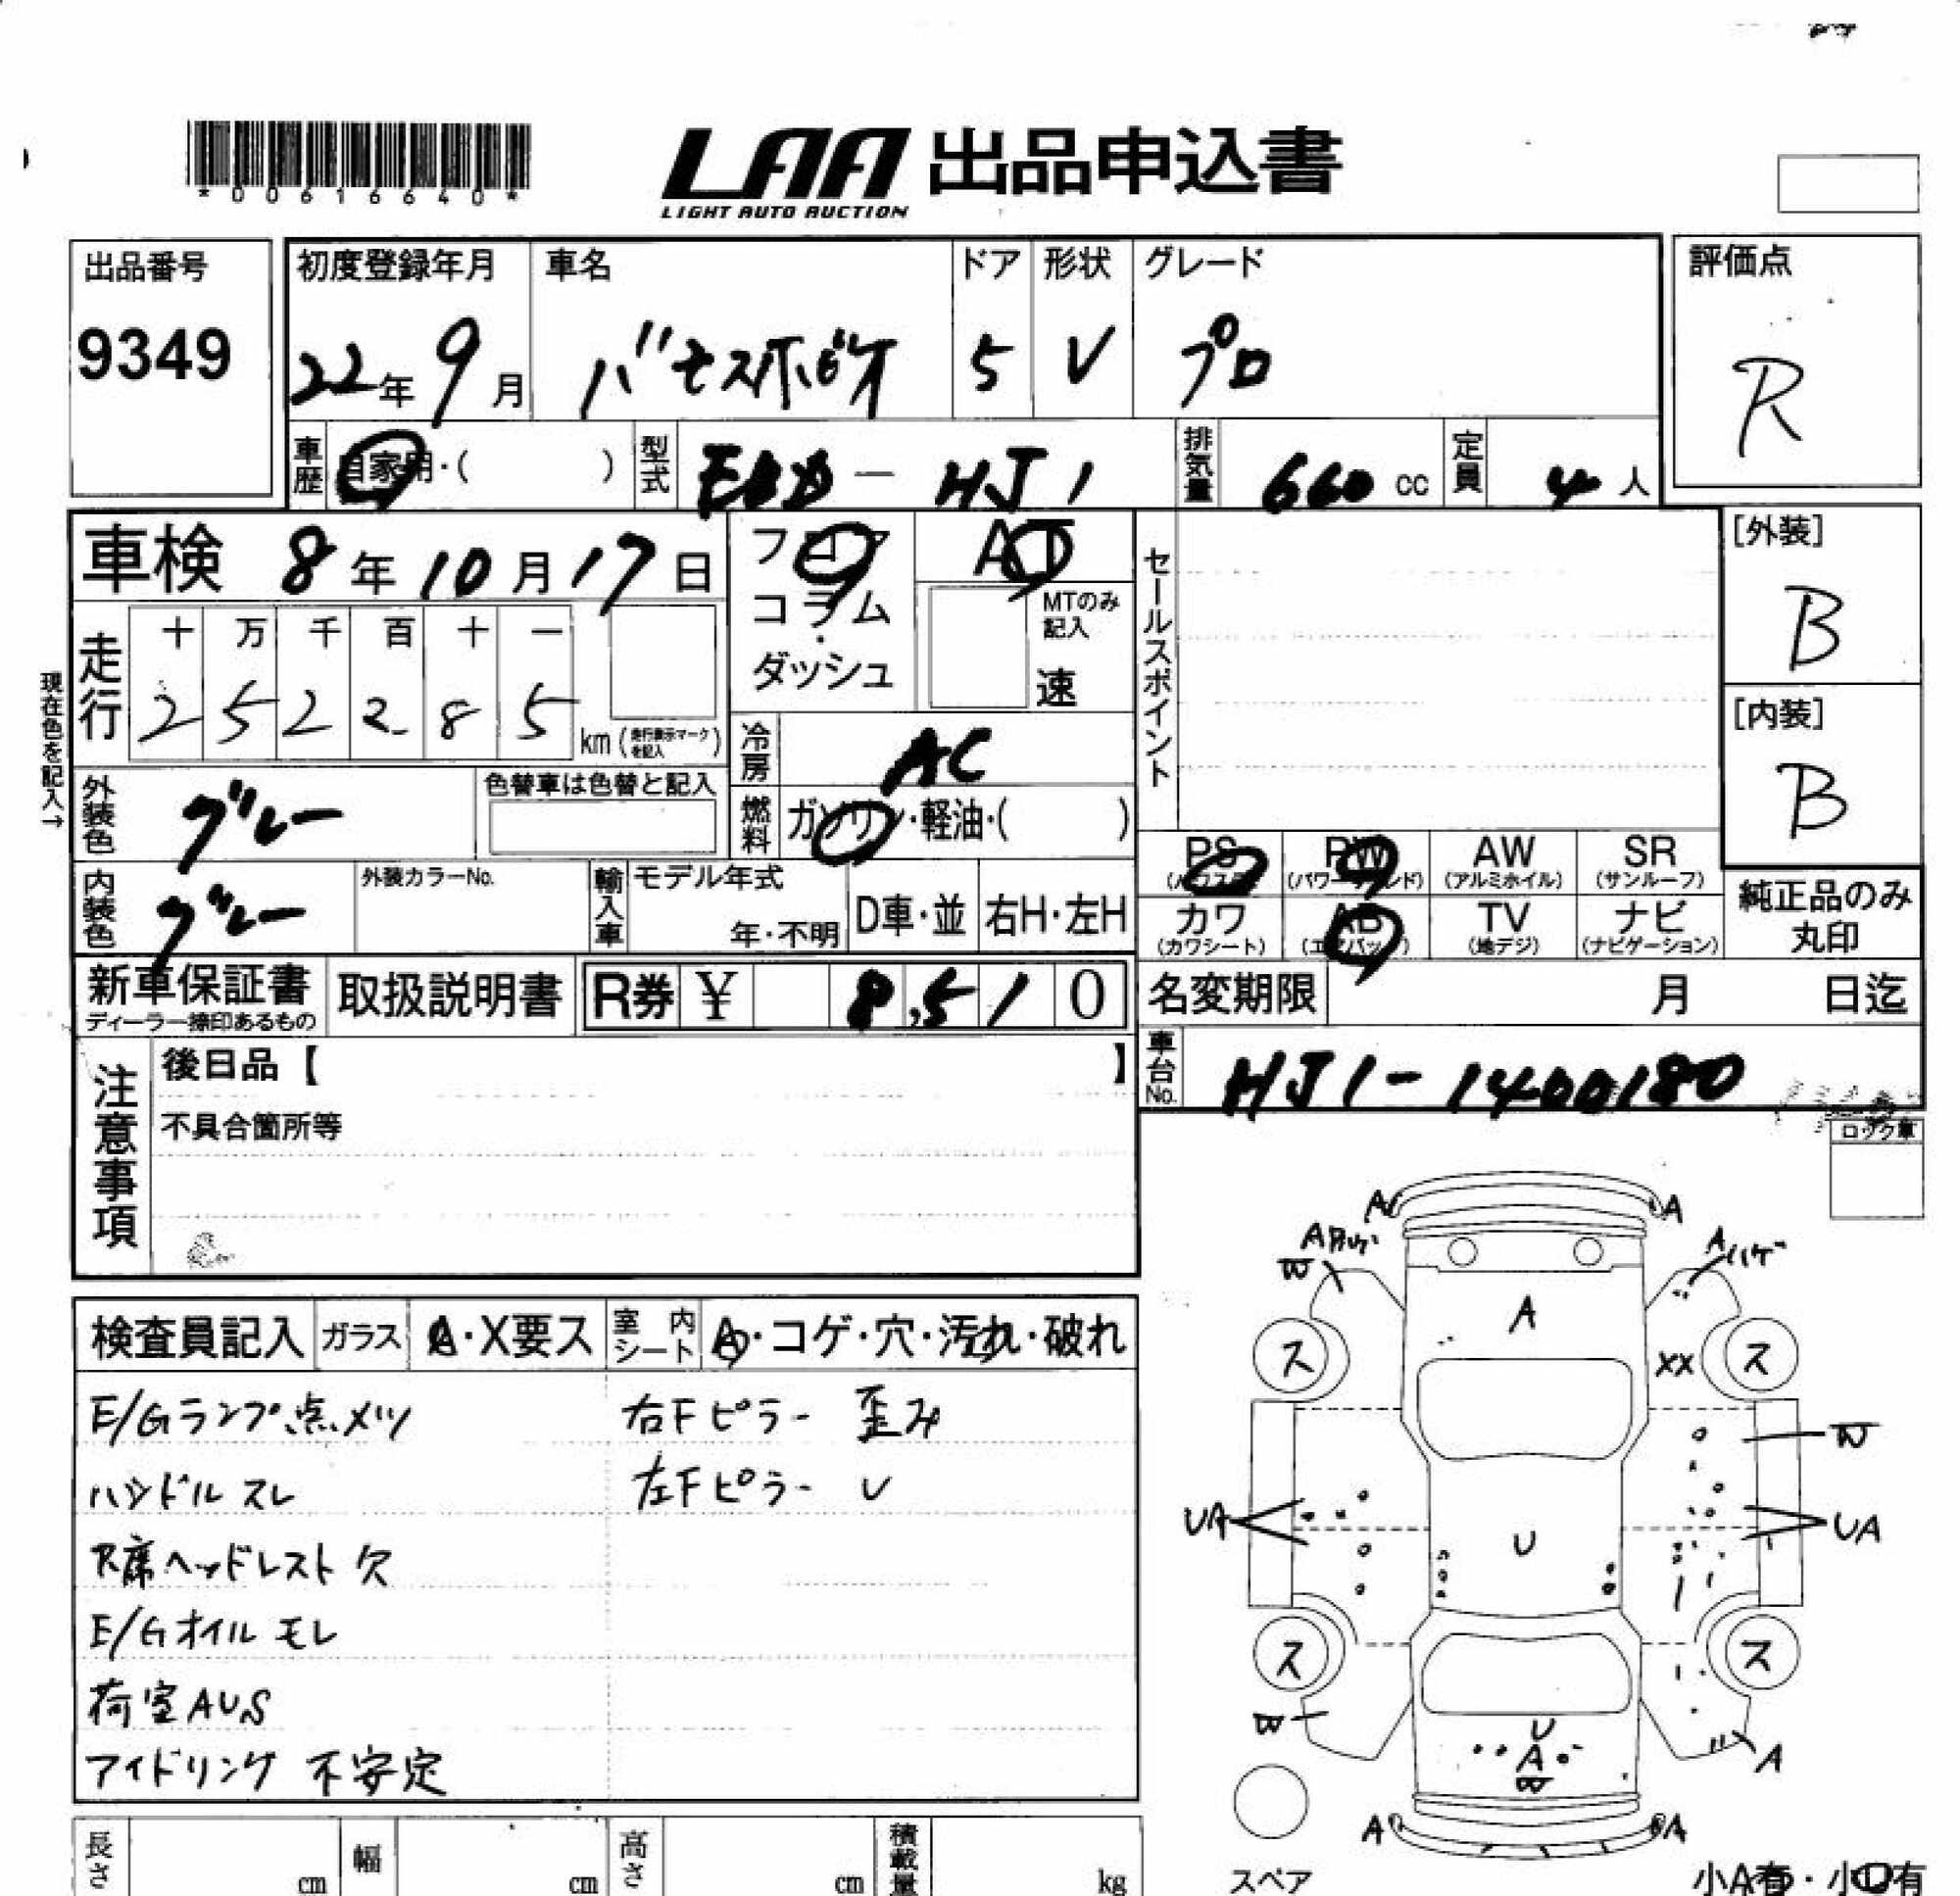 *00616640*
LAA 出品申込書
LIGHT AUTO AUCTION
出品番号
9349
初度登録年月
22年9月
車名
バモスホビオ
ドア
5
形状
V
グレード
プロ
評価点
R
車歴
自家用・( )
型式
EBD-HJ1
排気量
660 cc
定員
4人
車検 8年10月17日
フロア
コラム
・
ダッシュ
AT
MTのみ
記入
速
セールスポイント
[外装]
B
[内装]
B
現在色を記入→
走行
十 万 千 百 十 一
2 5 2 2 8 5
km (走行表示マークを記入)
冷房
AC
燃料
ガソリン・軽油・( )
外装色
グレー
色替車は色替と記入
内装色
グレー
外装カラーNo.
輸入車
モデル年式
年・不明
D車・並
右H・左H
PS
PW
AW
(アルミホイル)
SR
(サンルーフ)
カワ
(カワシート)
AB
(エアバッグ)
TV
(地デジ)
ナビ
(ナビゲーション)
純正品のみ
丸印
新車保証書
ディーラー捺印あるもの
取扱説明書
R券 ¥ 8,510
名変期限 月 日迄
車台No.
HJ1-1400180
注意事項
後日品【 】
不具合箇所等
ロック車
検査員記入
ガラス
A・X要ス
室内シート
A・コゲ・穴・汚れ・破れ
E/Gランプ点メツ
右Fピラー 歪み
ハンドル スレ
左Fピラー U
R席ヘッドレスト 欠
E/Gオイル モレ
荷室AUS
アイドリング 不安定
A A
A
W
A ハゲ
A
ス ス
XX
W
UA
U
UA
ス ス
W
U
A
W
A
A A
スペア
小A有・小U有
長さ
cm
幅
cm
高さ
cm
積載量
kg